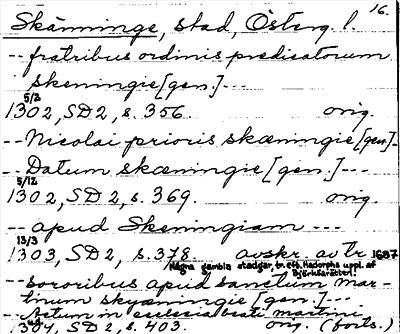 16.
Skänninge, stad, Österg. l.
-- fratribus ordinis predicatorum
skeningie [gen.] ---
5/3
1302, SD 2, s. 356. orig.
-- Nicolai prioris skæningie [gen.] -
-- Datum skæningie [gen.] ---
5/12
1302, SD 2, s. 369. orig.
-- apud Skeningiam ---
13/3
1303, SD 2, s. 378. avskr. av tr 1687
Några gambla stadgar, tr. eft. Hadorphs uppl. af
Björköarätten!
-- sororibus apud sanctum mar-
tinum skyæningie [gen.] ---
-- Actum in ecclesia beati martini
SD 2, s. 403. orig. (forts.)